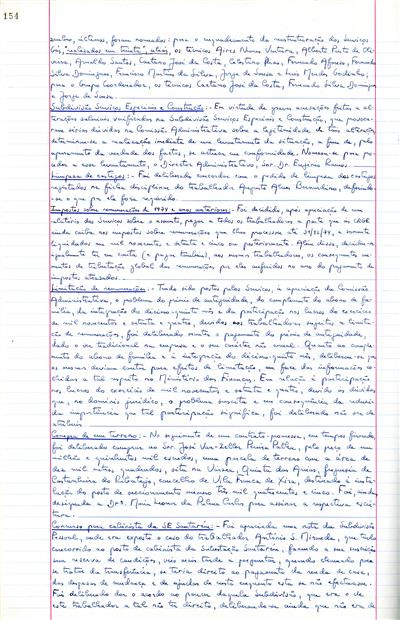 154
zembro, últimos, foram nomeados: para o enquadramento da reestruturação dos Serviços
os técnicos Aires Nunes Ventura, Alberto Pinto de Oli-
veira, Arnaldo Santos, Caetano José da Costa, Fernando Afonso, Fernando
Silva Domingues, Francisco da Silva, Jorge de Sousa e Luís Godinho;
para o Grupo Coordenador, os técnicos Caetano José da Costa, Fernando Silva Domingues
e Jorge de Sousa.
Subdivisão Serviços Especiais e Construção:- Em virtude de graves acusações feitas e al-
terações salariais verificadas na Subdivisão Serviços Especiais e Construção, que provoca-
ram sérias dúvidas na Comissão Administrativa sobre a legitimidade de tais alterações,
determinou-se a realização imediata de um levantamento da situação, a fim de, pelo
apuramento da verdade dos factos, se actuar em conformidade. Nomeou-se para pro-
ceder a esse levantamento, o Director Administrativo, Sor. Dr. Eugénio Ramos.
Limpeza de castigos:- Foi deliberado concordar com o pedido de limpeza dos castigos
registados na ficha disciplinar do trabalhador Augusto Alves Bernardino, deferindo-
se o que por ele fora requerido.
Impostos sobre remunerações de 1974 e anos anteriores:- Foi decidido, após apreciação de um
relatório dos Serviços sobre o assunto, pagar a todos os trabalhadores a parte que à CRGE
ainda caiba nos impostos sobre remunerações que lhes processou até 31/12/74, e somente
liquidados em mil novecentos e setenta e cinco ou posteriormente. Além disso, decidiu-se
igualmente ter em conta (e pagar também), aos mesmos trabalhadores, os consequentes au-
mentos de tributação global das remunerações por eles auferidas no ano do pagamento de
impostos atrasados.
Limitação de remunerações:- Tendo sido postos pelos Serviços, à apreciação da Comissão
Administrativa, o problema do prémio de antiguidade, do complemento do abono de fa-
mília, da integração do décimo-quinto mês e da participação nos lucros do exercício
de mil novecentos e setenta e quatro, devidos aos trabalhadores sujeitos a limita-
ção de remuneração, foi deliberado manter o pagamento do prémio de antiguidade,
dado o uso tradicional na empresa e o seu carácter não anual. Quanto ao comple-
mento do abono de família e à integração do décimo-quinto mês, deliberou-se que
os mesmos deviam contar para efeitos de limitação, em face das informações co-
lhidas a tal respeito no Ministério das Finanças. Em relação à participação
nos lucros do exercício de mil novecentos e setenta e quatro, devido às dúvidas
que, no domínio jurídico, o problema suscita e em consequência da reduzi-
da importância que tal participação significa, foi deliberado não ser de
atribuir.
Compra de um terreno:- No seguimento de um contrato-promessa, em tempos firmado,
foi deliberado comprar ao Sor. José Van-Zeller Pereira Palha, pelo preço de um
milhão e quinhentos mil escudos, uma parcela de terreno com a área de
dez mil metros quadrados, sita na Quinta dos Anjos, freguesia de
Castanheira do Ribatejo, concelho de Vila Franca de Xira, destinada à insta-
lação do posto de seccionamento número três mil quatrocentos e cinco. Foi, ainda,
designada a Dra. Maria Leonor da Palma Carlos para assinar a respectiva escri-
tura.
Concurso para cabinista da SE Santarém:- Foi apreciada uma nota da Subdivisão
Pessoal, onde era exposto o caso do trabalhador António S. Miranda, que tendo
concorrido ao posto de cabinista da Subestação Santarém, fazendo a sua inscrição
sem reserva de condições, veio mais tarde a perguntar, quando chamado para
se tratar da transferência, se teria direito ao pagamento da renda de casa,
das despesas de mudança e de ajudas de custo enquanto esta se não efectuasse.
Foi deliberado dar o acordo ao parecer daquela Subdivisão, que era o de
este trabalhador a tal não ter direito, deliberando-se ainda que não era de